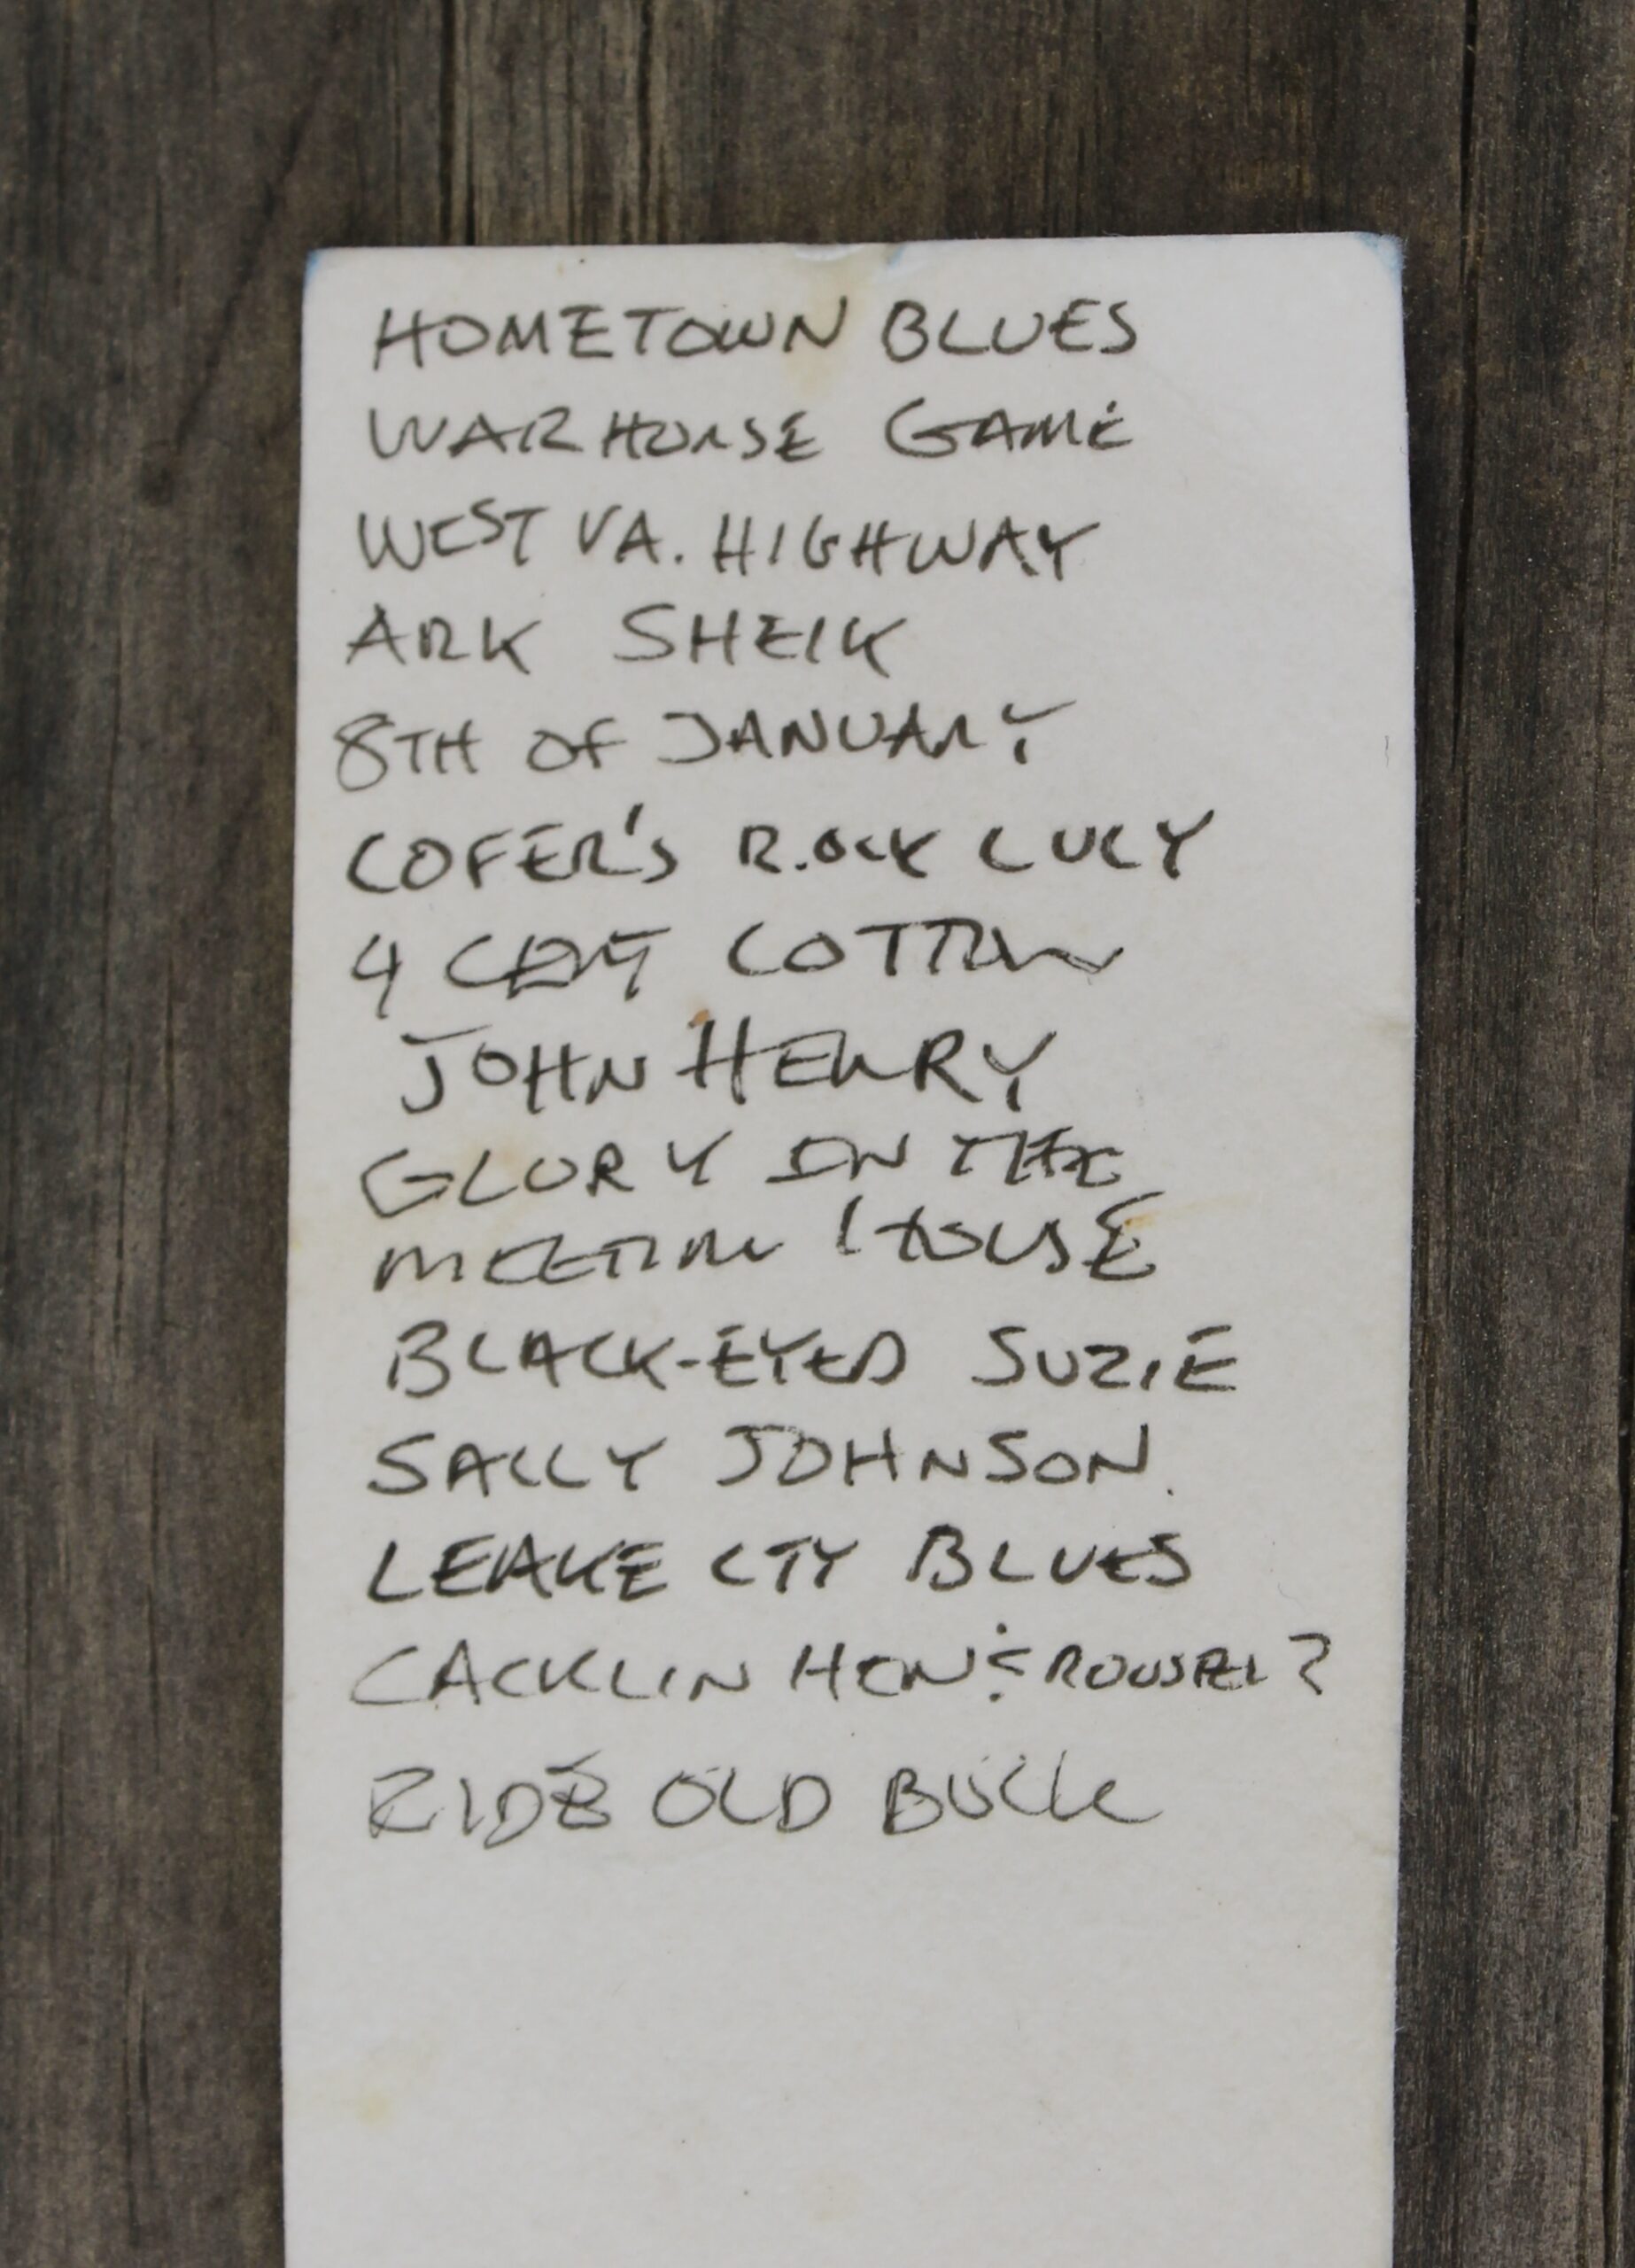 HOMETOWN BLUES
WARHORSE GAME
WEST VA. HIGHWAY
ARK SHEIK
8TH OF JANUARY
COFER'S ROCK LUCY
4 CENT COTTON
JOHN HENRY
GLORY IN THE
MEETIN HOUSE
BLACK-EYED SUZIE
SALLY JOHNSON
LEAKE CTY BLUES
CACKLIN HEN & ROOSTER?
RIDE OLD BUCK